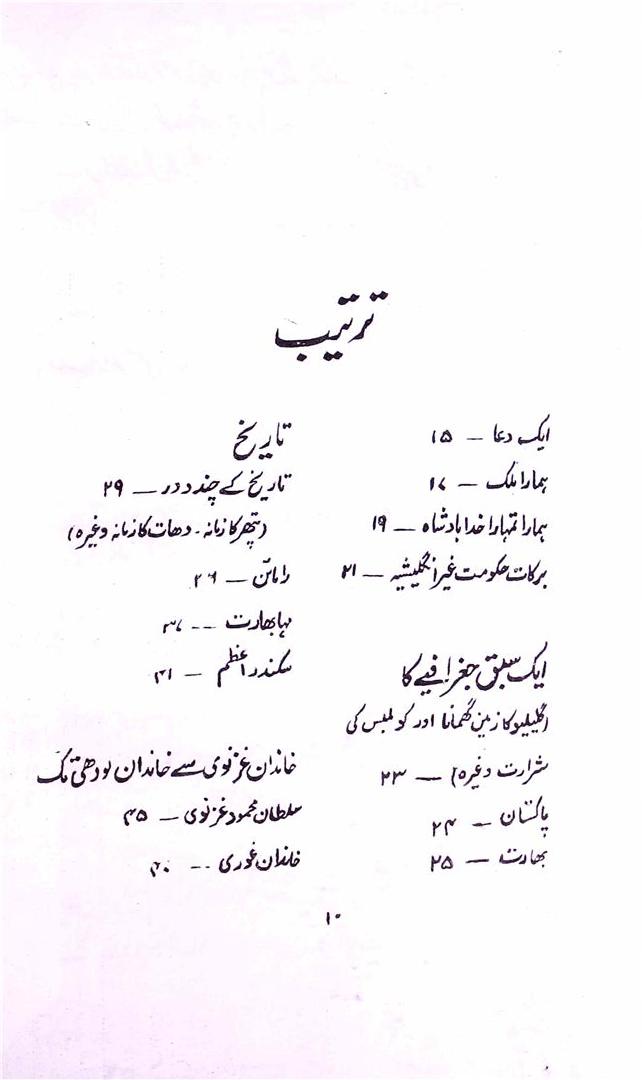 ترتیب
ایک دعا — ۱۵
ہمارا ملک — ۱۷
ہمارا تمہارا خدا بادشاہ — ۱۹
برکات حکومت غیر انگلیشیہ — ۲۱
ایک سبق جغرافیے کا
(گلیلیو کا زمین گھمانا اور کولمبس کی
شرارت وغیرہ) — ۲۳
پاکستان — ۲۴
بھارت — ۲۵
تاریخ
تاریخ کے چند دور — ۲۹
(پتھر کا زمانہ - دھات کا زمانہ وغیرہ)
رامائن — ۳۶
مہابھارت -- ۳۷
سکندر اعظم — ۴۱
خاندان غزنوی سے خاندان لودھی تک
سلطان محمود غزنوی — ۴۵
خاندان غوری --
۱۰